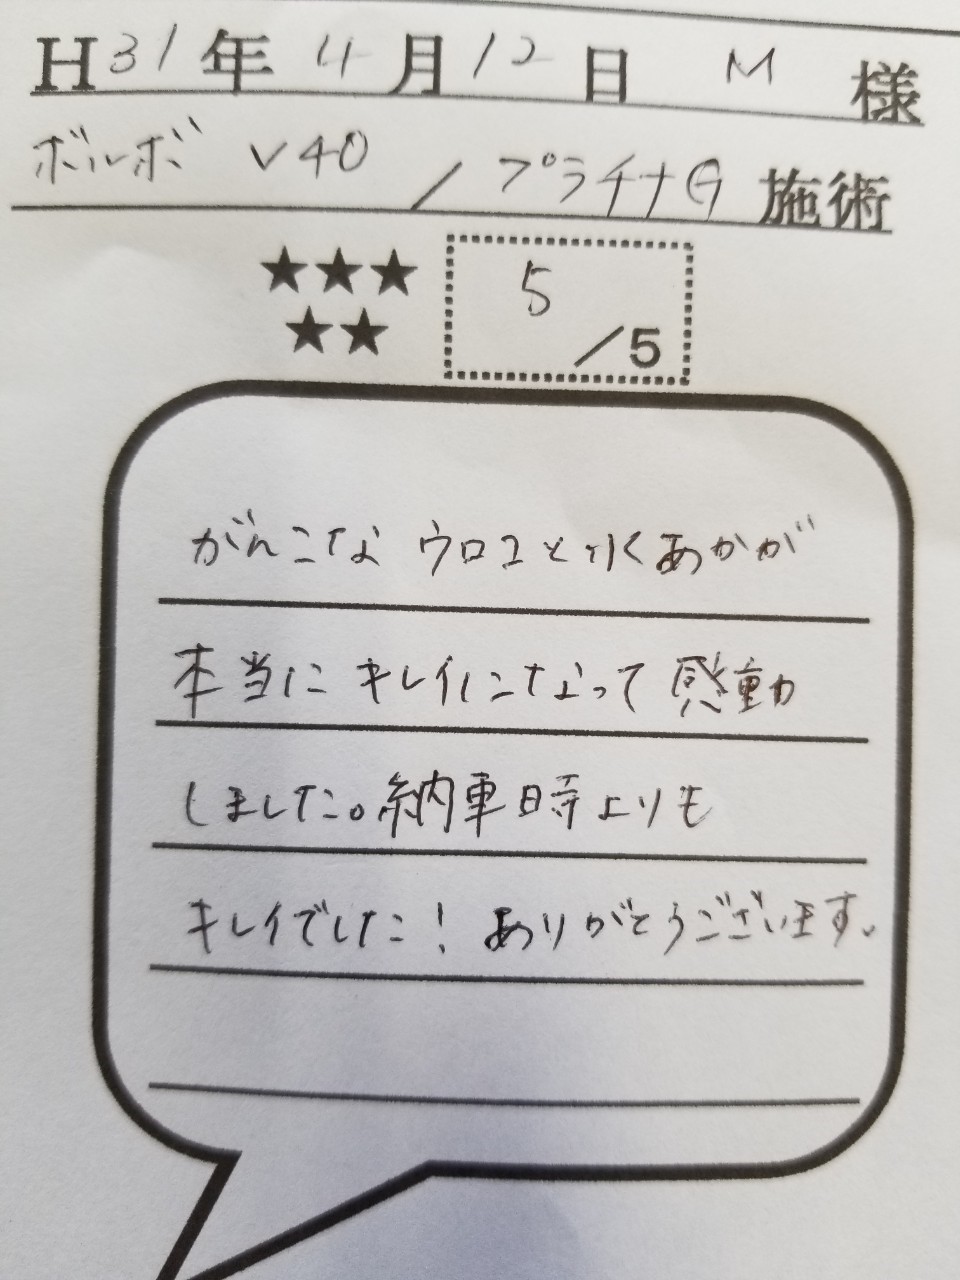 H31年4月12日 M 様
ボルボ V40 / プラチナG 施術
★★★ 5
★★ /5
がんこな ウロコと水あかが
本当に キレイになって 感動
しました。納車時よりも
キレイでした! ありがとうございます。